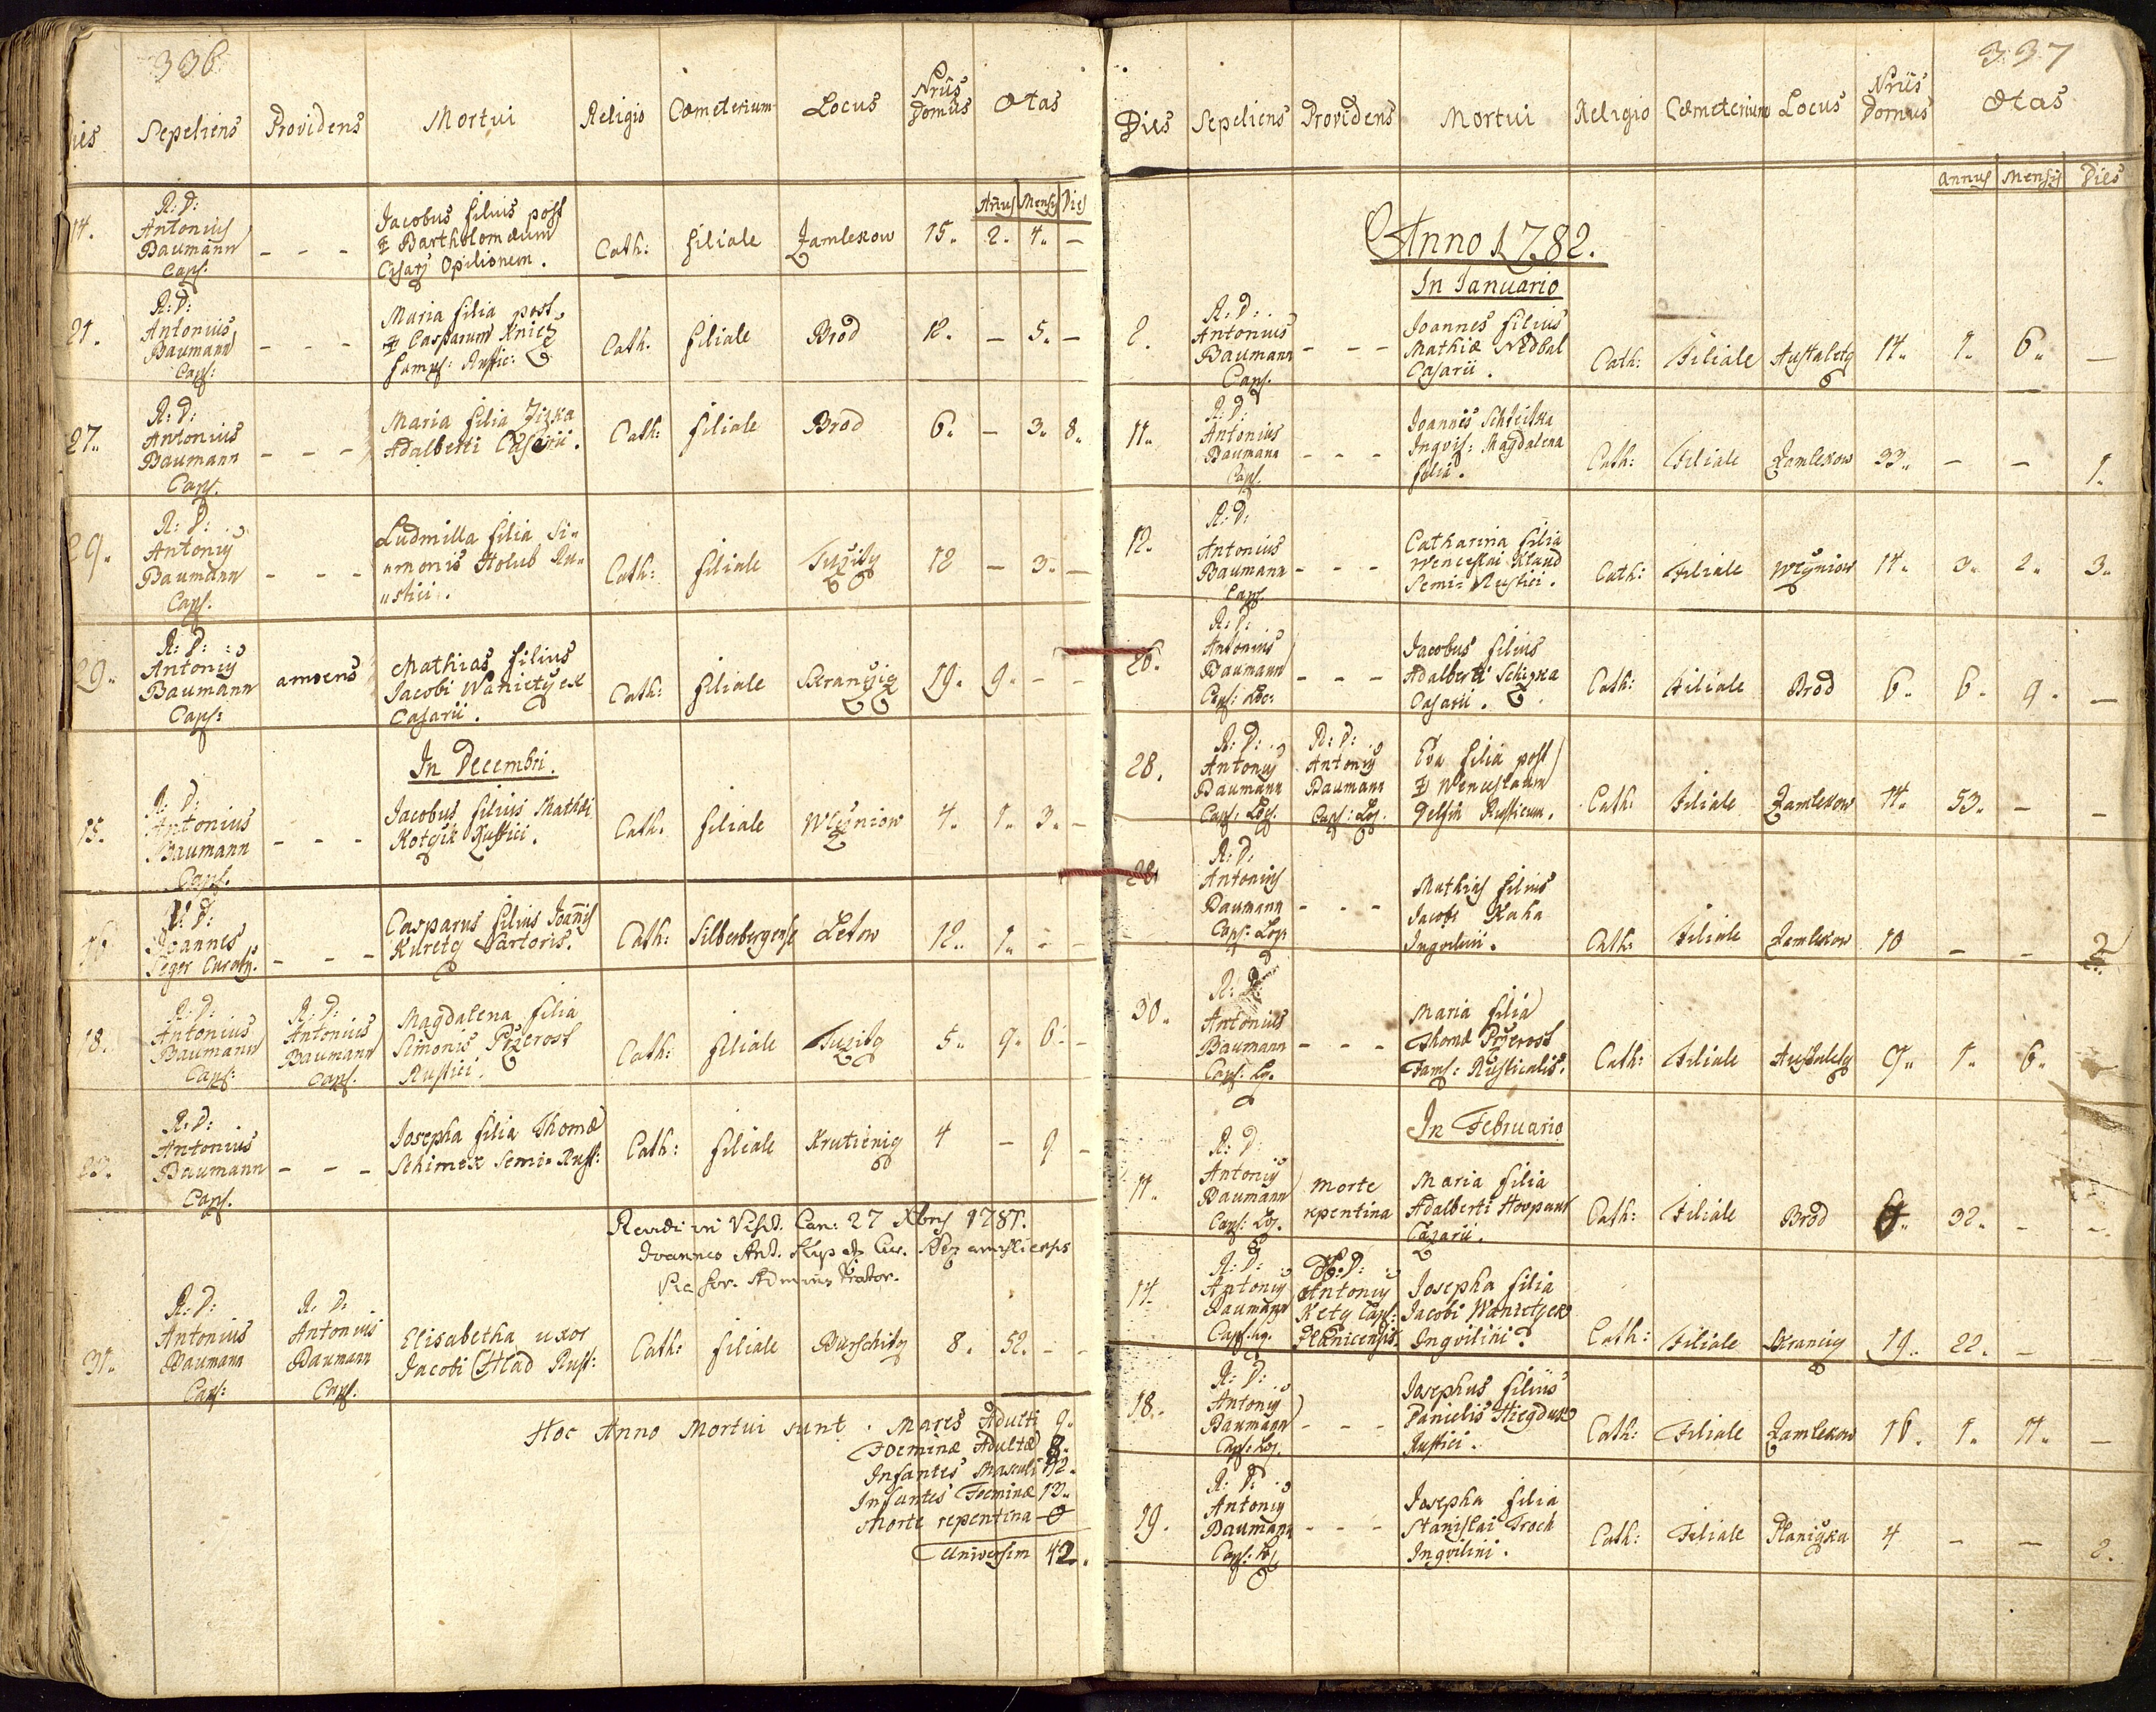 336
ies Sepeliens Providens Mortui Religio Cœmeterium Locus Nrūs Domûs Ætas
Añus Mensis Dies
14. R: D: Antonius Baumann Capl: - - - Jacobus filius post ‡ Bartholomæum Cisarz Opilionem. Cath: filiale Zamlekow 15. 2. 4. -
21. R: D: Antonius Baumann Capl: - - - Maria filia post ‡ Casparum Fam: Rustic: Cath: filiale Brod 12. - 5. -
27. R: D: Antonius Baumann Capl. - - - Maria filia Jizka Adalberti Casarii. Cath: filiale Brod 6. - 3. 8.
29. R: D: Antonij Baumann Capl. - - - Ludmilla filia Si- monis Holub Ru- stici. Cath: filiale Tuzitz 12 - 3. -
29. R: D: Antonij Baumann Capl: amoens Mathias filius Jacobi Wanietyek Casarii. Cath: filiale 19. 9. - -
In Decembri.
15. R: D: Antonius Baumann Capl. - - - Jacobus filius Mathæi Kotyik Rustici. Cath. filiale Weyniow 4. 1. 3. -
16 R: D: Joannes Seger Curatus. - - - Casparus filius Joannis Kuretz Sartoris. Cath: Silberbergense Letow 12. 1. - -
18. R: D: Antonius Baumann Capl: R: D: Antonius Baumann Capl. Magdalena filia Simonis Pžerost Rustici. Cath: filiale Tuzitz 5. 9. 6. -
R: D: Antonius Baumann Capl. - - - Josepha filia Thomæ Schimek Semi-Rust: Cath: filiale Krutienitz 4 - 9 -
Revidi in Visit. Can: 27 Xbris 1781.
Joannes Ant.
Vic. for. Administrator.
31. R: D: Antonius Baumann Capl: R: D: Antonius Baumann Capl. Elisabetha uxor Jacobi Hlad Rust: Cath: filiale Burschitz 8. 52. - -
Hoc Anno Mortui sunt. Mares Adulti 9.
Foeminæ Adultæ 8.
Infantes Masculi 12.
Infantes Foeminæ 13.
Morte repentina 0
Universim 42.
337
Dies Sepeliens Providens Mortui Religio Cœmeterium Locus Nrūs Domus Ætas
Annus Mensis Dies
Anno 1782.
In Januario
2. R: D: Antonius Baumann Capl. - - - Joannes filius Mathiæ Nedbal Casarii. Cath: Filiale Austaletz 14. 1. 6. -
11. R: D: Antonius Baumann Capl. - - - Joannis Inqvil: Magdalena filia. Cath: Filiale Zamlekow 33. - - 1.
12. R: D: Antonius Baumann Capl. - - - Catharina filia Wenceslai Semi-Rustici. Cath: Filiale Weyniow 14. 3. 2. 3.
26. R: D: Antonius Baumann Capl: Loc: - - - Jacobus filius Adalberti Schizka Casarii. Cath: Filiale Brod 6. 6. 9. -
28. R: D: Antonij Baumann Capl: Loc. R: D: Antonij Baumann Capl: Loc. Eva filia post ‡ Wenceslaum Rusticum. Cath: Filiale Zamlekow 11. 53. - -
28. R: D: Antonius Baumann Capl: Loc. - - - Mathias filius Jacobi Kaha Inqvilini. Cath: Filiale Zamlekow 10 - - 2
30. R: D: Antonius Baumann Capl: Lo. - - - Maria filia Thomæ Pžerost Fam: Rusticalis. Cath: Filiale Austaletz 9. 1. 6. -
In Februario
11. R: D: Antonij Baumann Capl: Loc. morte repentina Maria filia Adalberti Casarii. Cath: Filiale Brod 32. - -
14. R: D: Antonij Baumann Capl: Lo. R: D: Antonij Ketz Capl: Planicensis. Josepha filia Jacobi Wanietyek Inqvilini Cath: Filiale 19. 22. - -
18. R: D: Antonij Baumann Capl: Loc. - - - Josephus filius Danielis Rustici. Cath: Filiale Zamlekow 16. 1. 11. -
19. R: D: Antonij Baumann Capl: Lo. - - - Josepha filia Stanislai Troch Inqvilini. Cath: Filiale Planiyka 4 - - 2.